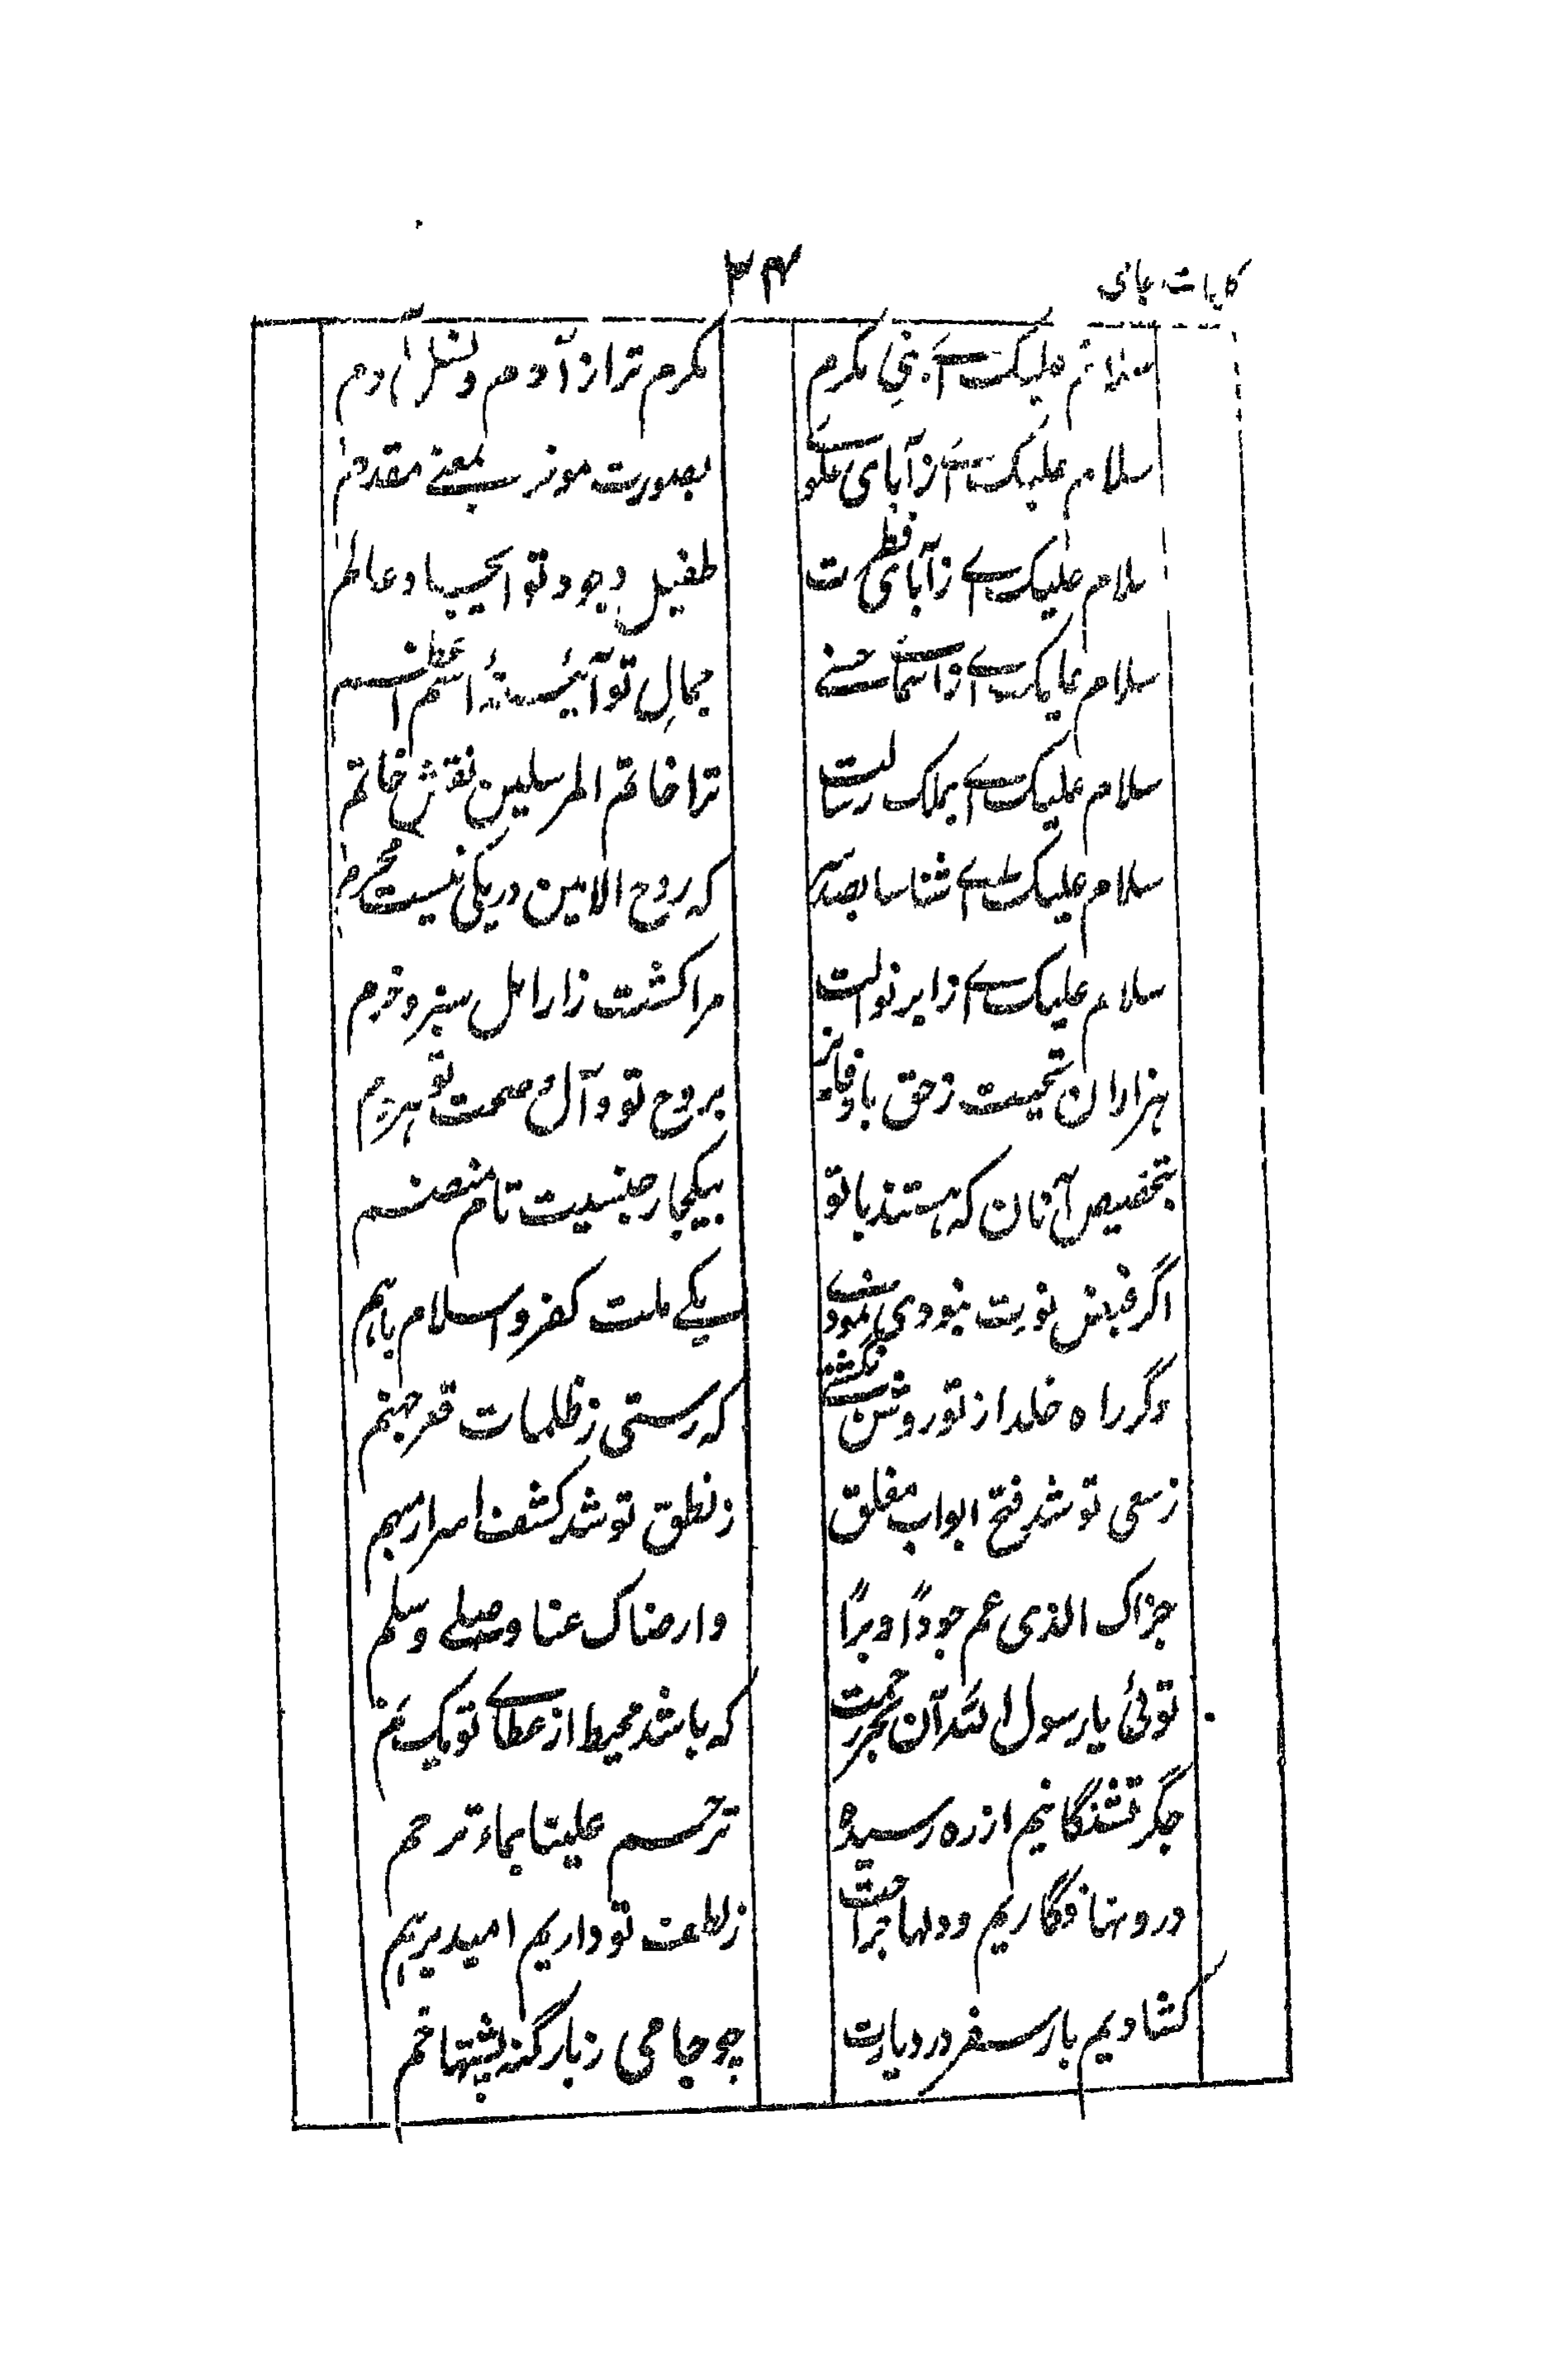 کلیات جامی
۳۴
سلام علیک اے نبی مکرم
مکرم تر از آدم و نسل آدم
سلام علیک اے ز آبای علوے
بصورت موخر بمعنے مقدم
سلام علیک اے ز آبای فطرت
طفیل وجود تو ایجاد عالم
سلام علیک اے ز اسمائے حسنے
جمالِ تو آئینۂ اسم اعظم
سلام علیک اے بملک رسالت
ترا خاتم المرسلین نقش خاتم
سلام علیک اے شناسا بصد سر
که روح الامین در یکی نیست محرم
سلام علیک اے ز ابر نوالت
مرا کشت زار امل سبز و خرم
هزاران تحیت ز حق باد فایز
بروح تو و آل و صحبت تو هر دم
بتخصیص آنان که هستند با تو
بیکجا ز جنسیت تام منضم
اگر فیض نورت نبودی نمودے
یکے ملت کفر و اسلام باهم
وگر راه خلد از تو روشن نگشتے
که رستی ز ظلمات قعر جهنم
ز سعی تو شد فتح ابواب مغلق
ز نطق تو شد کشف اسرار مبهم
جزاک الذی عم جوداً و براً
وارضاک عنا وصلے وسلم
توئی یا رسول الله آن بحر رحمت
که باشد محیط از عطاے تو یک نم
جگر تشنگانیم از ره رسیده
ترحم علینا بماء ترحم
درونها فگاریم و دلها جراحت
ز لطف تو داریم امید مرهم
کشادیم بار سفر در دیارت
چو جامی ز بار گنه پشتها خم